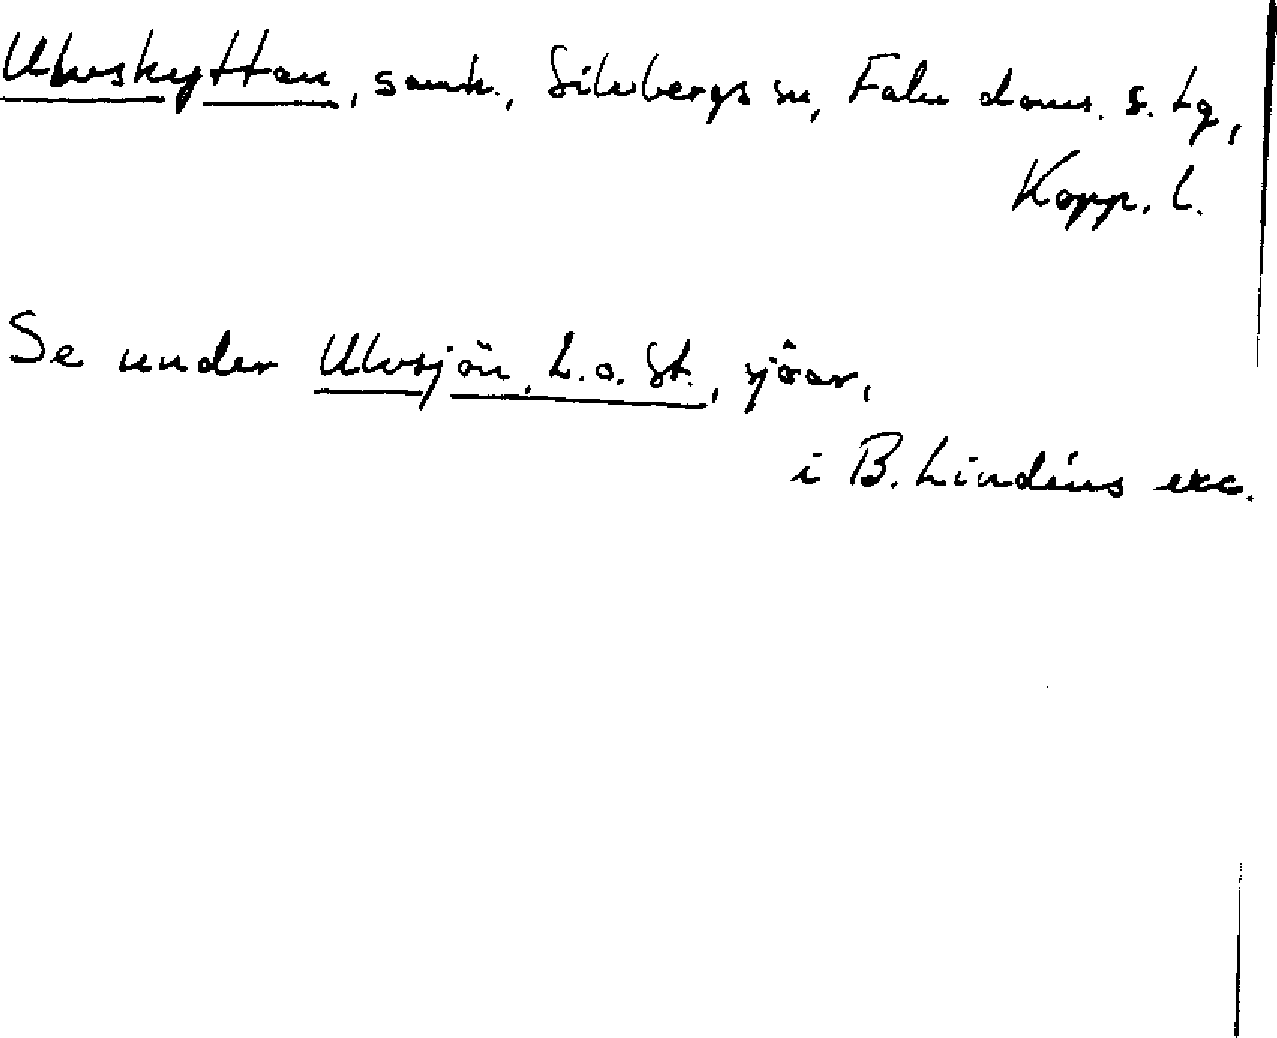 Ulvskyttan, sank., Silvbergs sn, Falu doms. s. tg,
Kopp. l.
Se under Ulvsjön, L.o. St., sjöar,
i B. Lindéns exc.